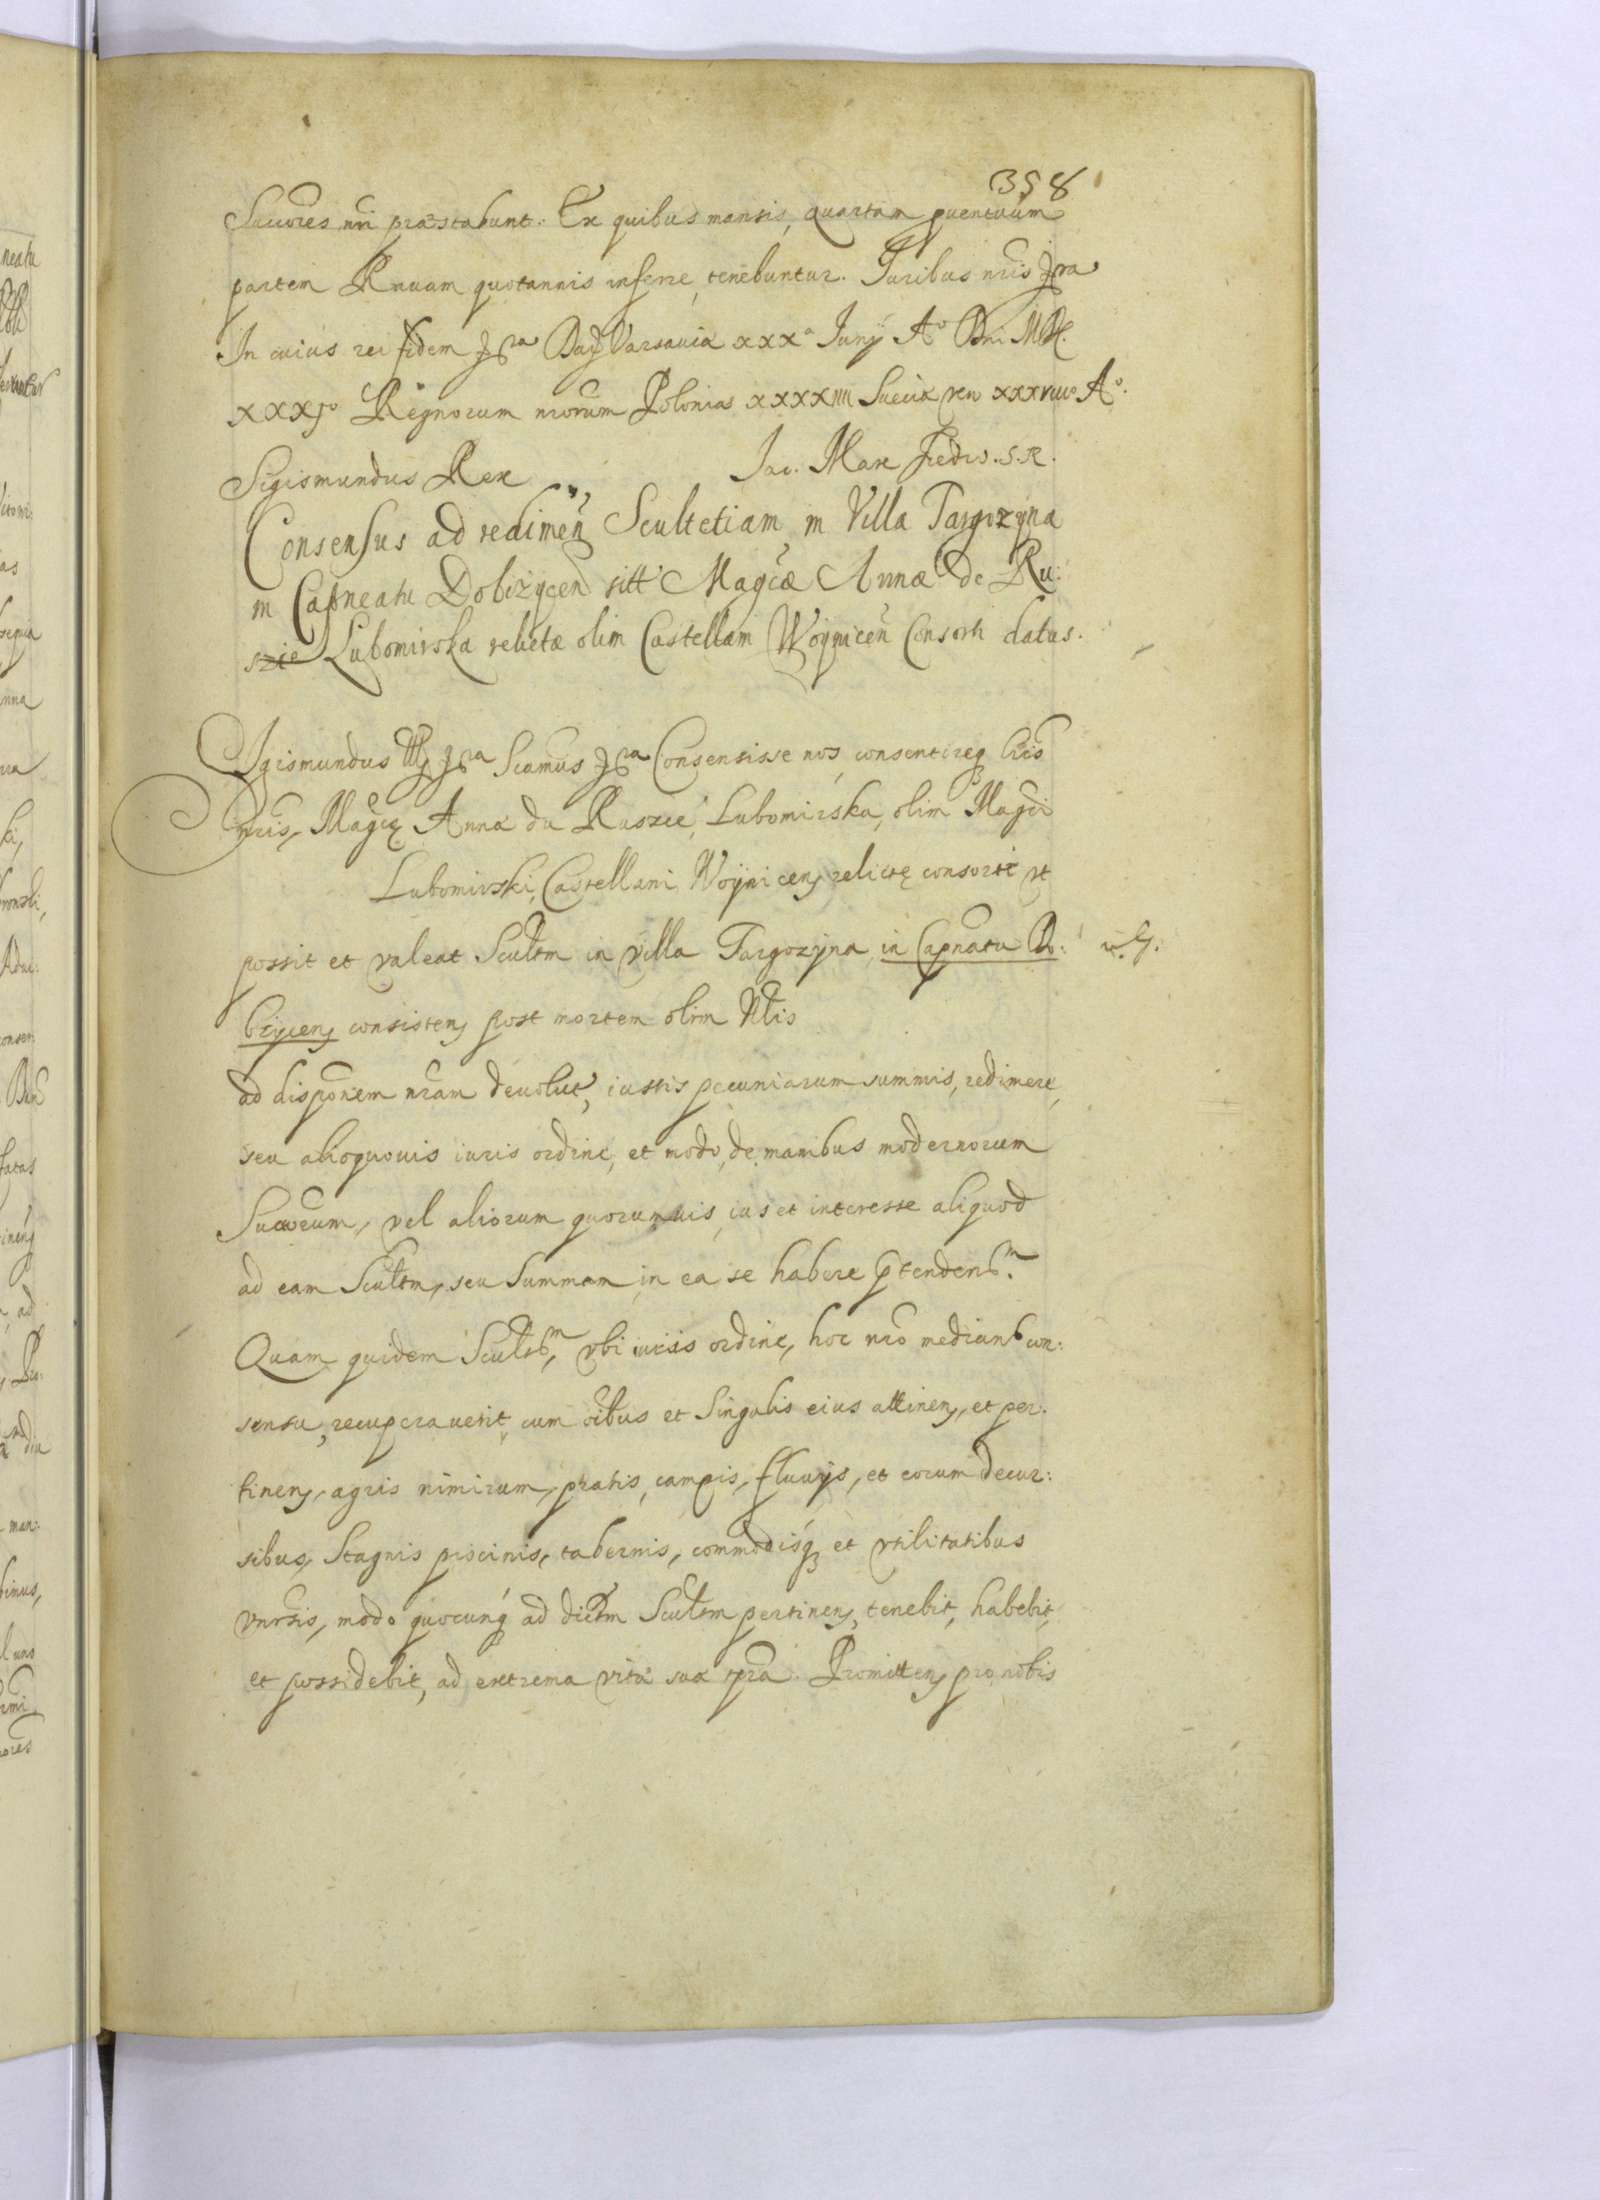 358
Succores nri præstabunt. Ex quibus mansis, quartam puentuum
partem Rnuam quotannis inferre, tenebuntur. Iuribus nris &ra
In cuius rei fidem &ra Dat Varsauiæ xxxa Iunij Ao Dni MDC.
xxxjo Regnorum nrorum Poloniæ xxxxiiii Sueciæ vero xxxviiio Ao.
Sigismundus Rex Jac. Max Fredro. S. R.
Consensus ad redimen Scultetiam in Villa Targozyna
in Capneatu Dobczycen sitt Magcæ Annæ de Ru:
szcie Lubomirska relictæ olim Castellani Woynicen Consorti datus.
Sigismundus III &ra Scamus &ra Consensisse nos, consentireq lris
nris, Magcę Annæ de Ruszcie Lubomirska, olim Magci
Lubomirski, Castellani Woynicen, relictę consorti vt
possit et valeat Scultm in villa Targozyna, in Capnatu Do:
bczycen, consisten, post mortem olim Nltis
ad disponem nram deuolut, iustis pecuniarum summis, redimere,
seu alioquouis iuris ordine, et modo, de manibus modernorum
Succorum, vel aliorum quorumuis, ius et interesse aliquod
ad eam Scultm, seu summam in ea se habere ptenden.
Quam quidem Scultm, vbi iuris ordine, hoc nro mediante con:
sensu, recuperauerit, cum oibus et singulis eius attinen, et per:
tinen, agris nimirum, pratis, campis, fluuijs, et eorum decur:
sibus, stagnis piscinis, tabernis, commodisq et vtilitatibus
vnrsis, modo quocunq ad dictm Scultm pertinen, tenebit, habebit,
et possidebit, ad extrema vitæ suæ tpra. Promitten, pro nobis